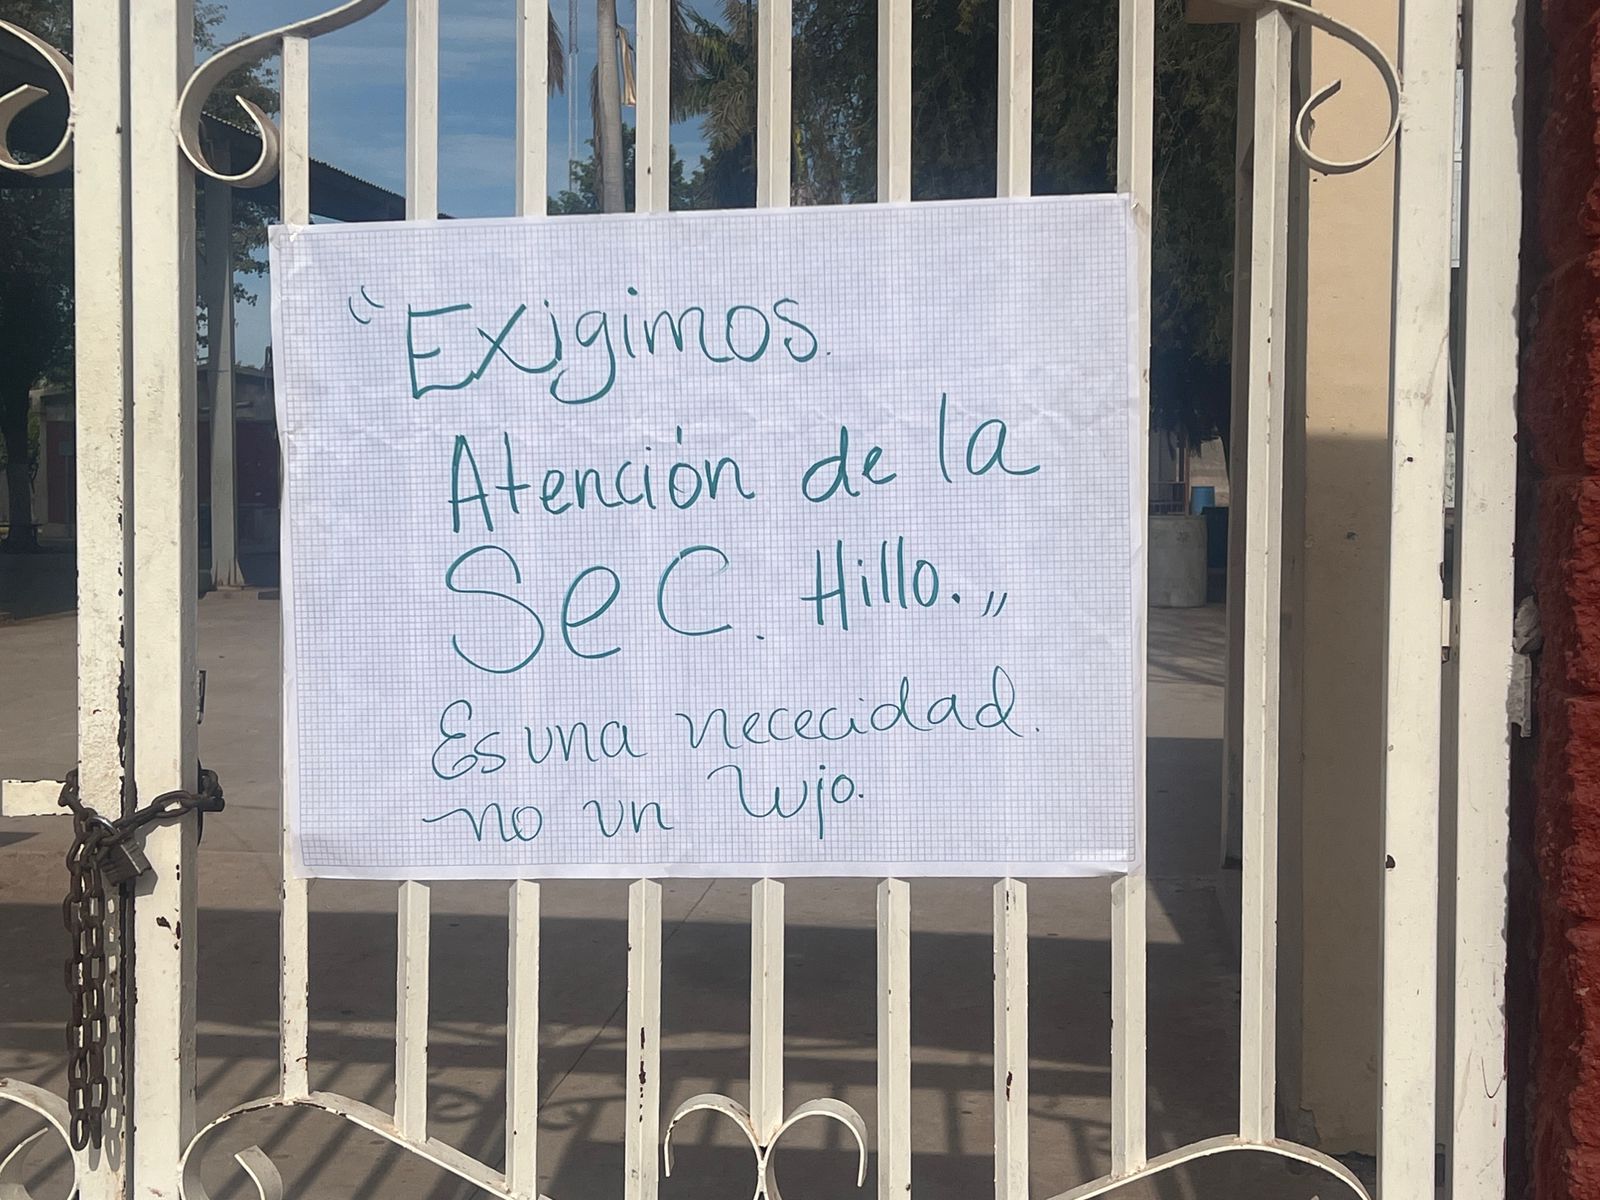 "Exigimos.
Atención de la
Sec. Hillo."
Es una nececidad.
no un lujo.